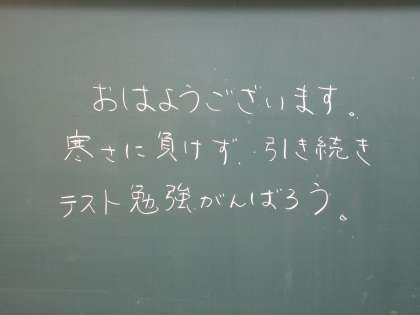 おはようございます。
寒さに負けず、引き続き
テスト勉強がんばろう。